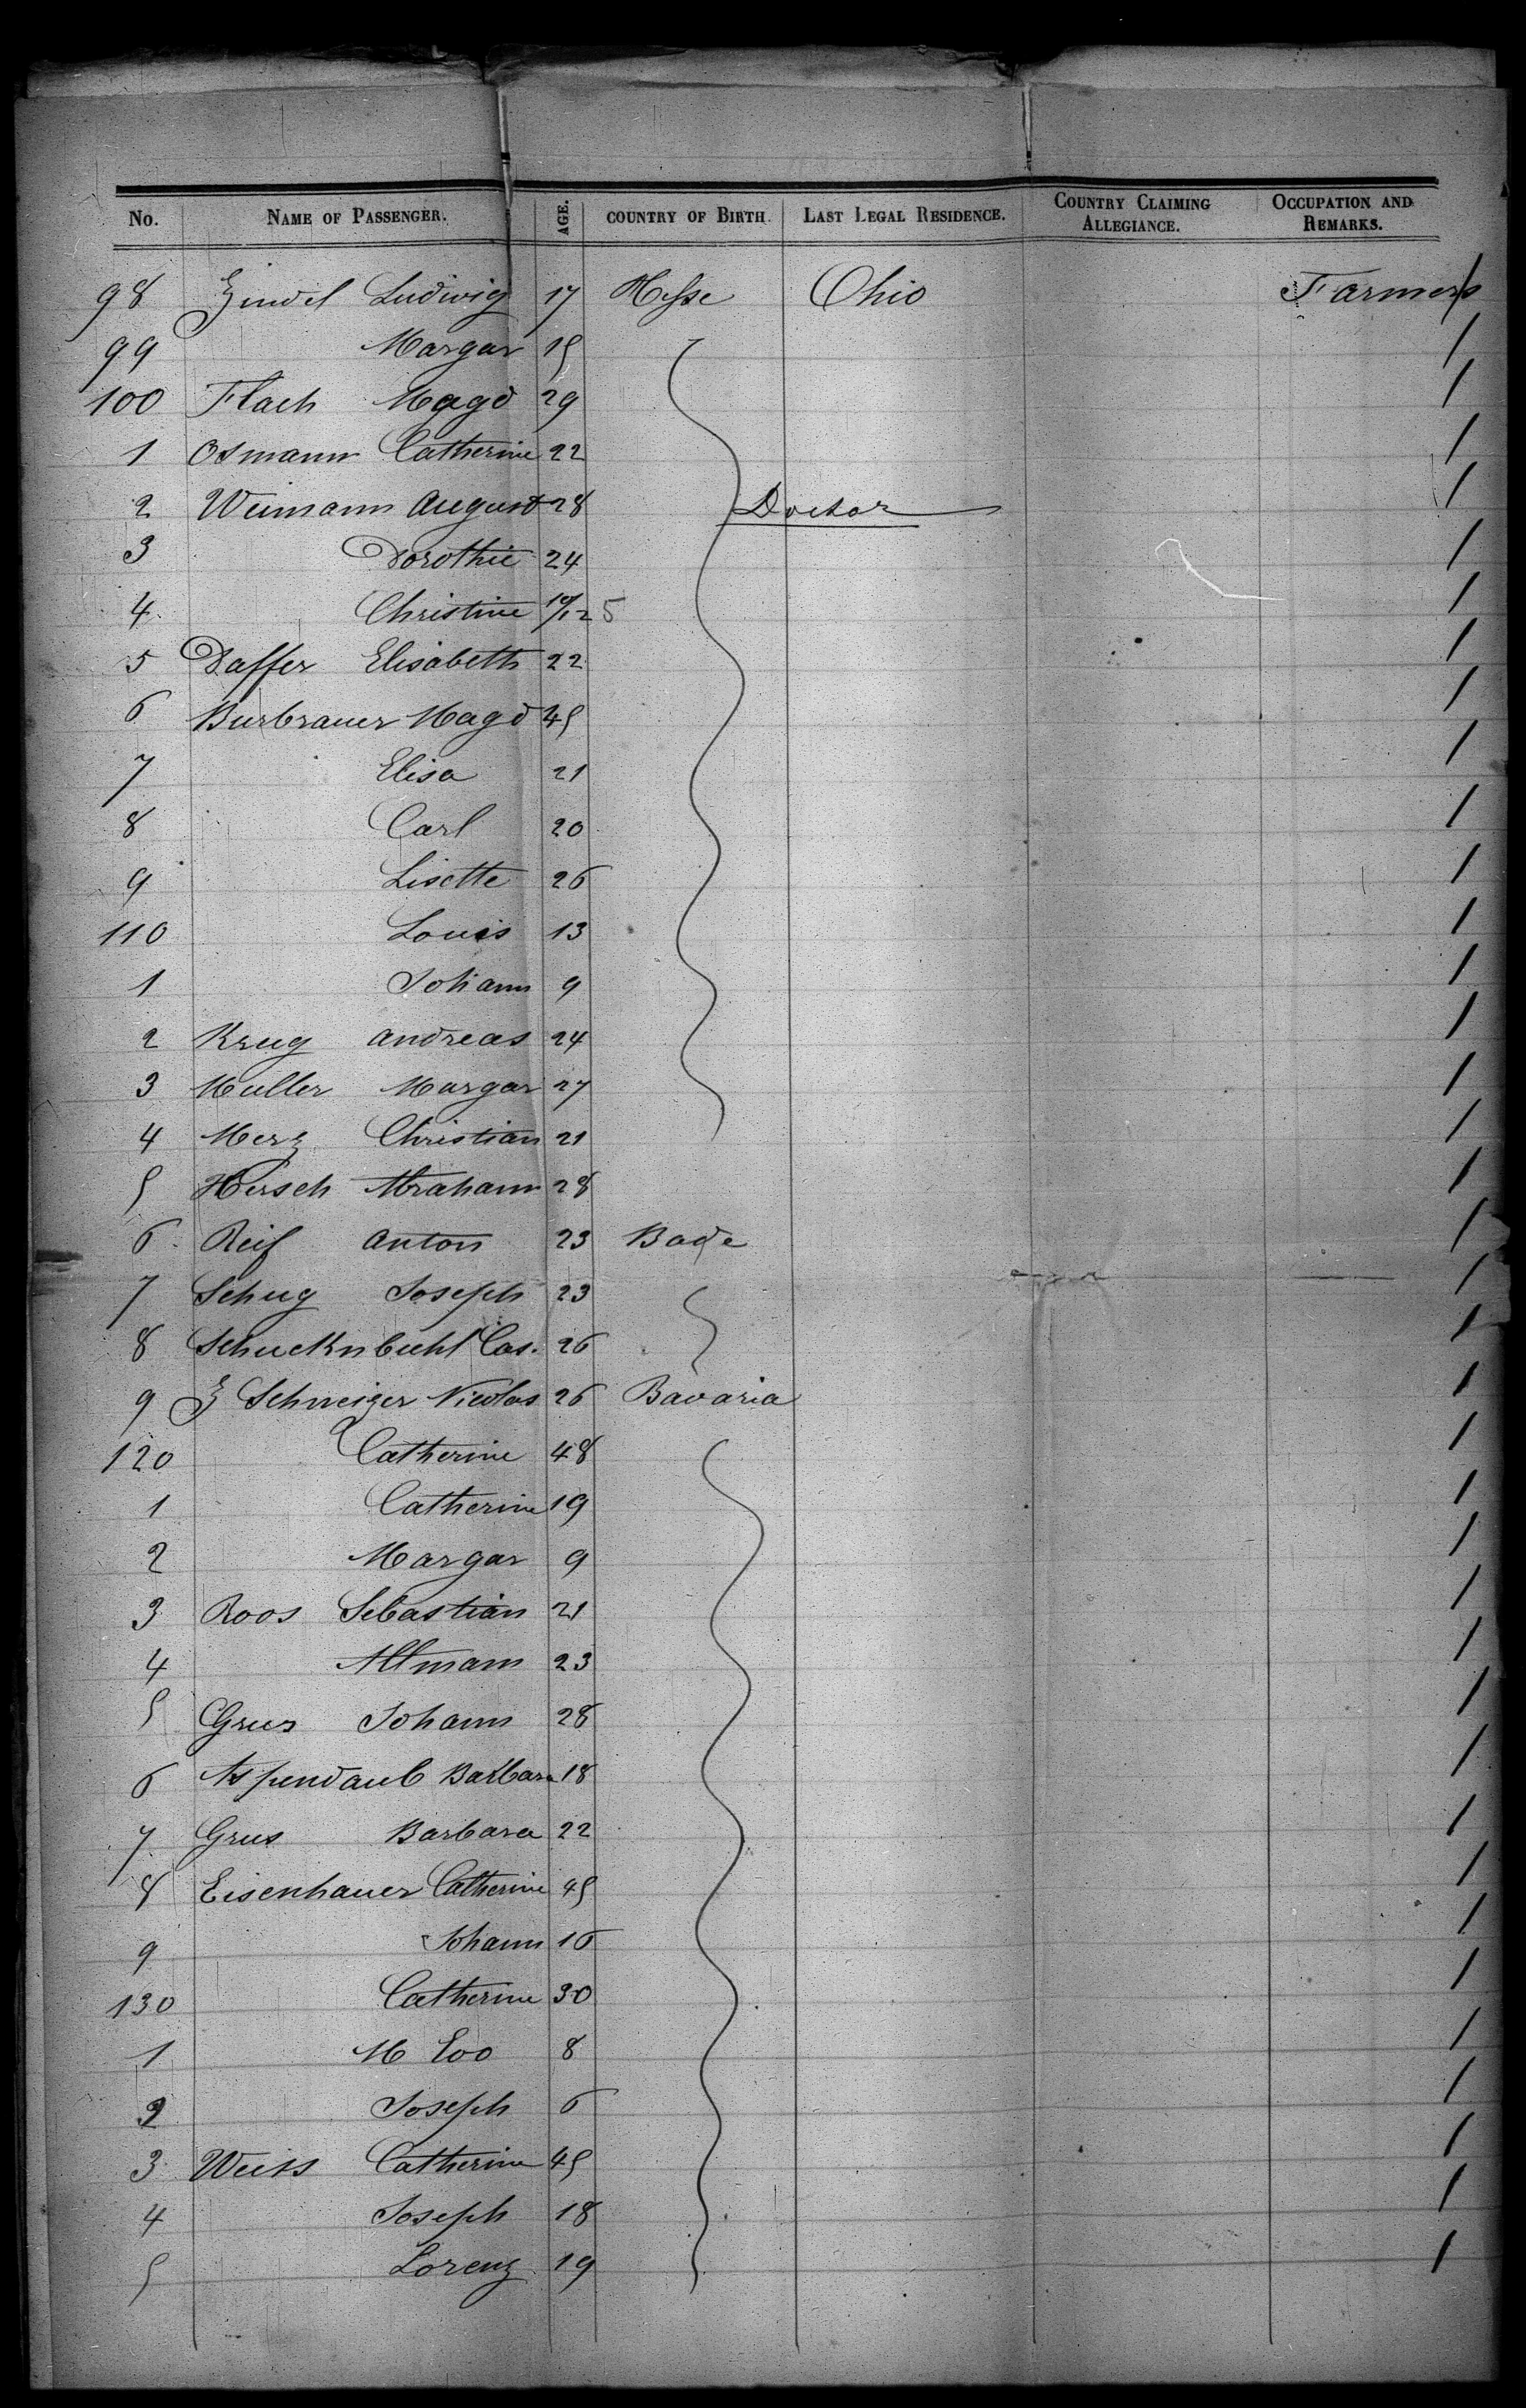 No. NAME OF PASSENGER. AGE. COUNTRY OF BIRTH. LAST LEGAL RESIDENCE. COUNTRY CLAIMING ALLEGIANCE. OCCUPATION AND REMARKS.
98 Zindel Ludwig 17 Hesse Ohio Farmers
99 Margar 15
100 Flach Magd 29
1 Osmann Catherine 22
2 Weimann August 28 Doctor
3 Dorothie 24
4 Christine 10/12 5
5 Daffer Elisabeth 22
6 Burbrauer Magd 45
7 Elisa 21
8 Carl 20
9 Lisette 26
110 Louis 13
1 Johann 9
2 Krug Andreas 24
3 Muller Margar 27
4 Merz Christian 21
5 Hirsch Abraham 28
6 Reif Anton 23 Bade
7 Schug Joseph 23
8 Cas. 26
9 Z Schweizer Nicolas 26 Bavaria
120 Catherine 48
1 Catherine 19
2 Margar 9
3 Roos Sebastian 21
4 Altmann 23
5 Grus Johann 28
6 Barbara 18
7 Grus Barbara 22
8 Eisenhauer Catherine 45
9 Johann 16
130 Catherine 30
1 M Eva 8
2 Joseph 6
3 Weiss Catherine 45
4 Joseph 18
5 Lorenz 19